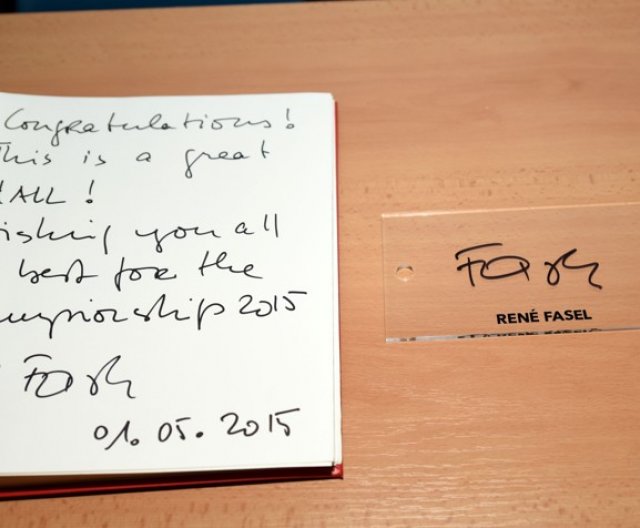 Congratulations!
This is a great
HALL!
ishing you all
best for the
mpionship 2015
Fasel
01.05.2015
Fasel
RENÉ FASEL